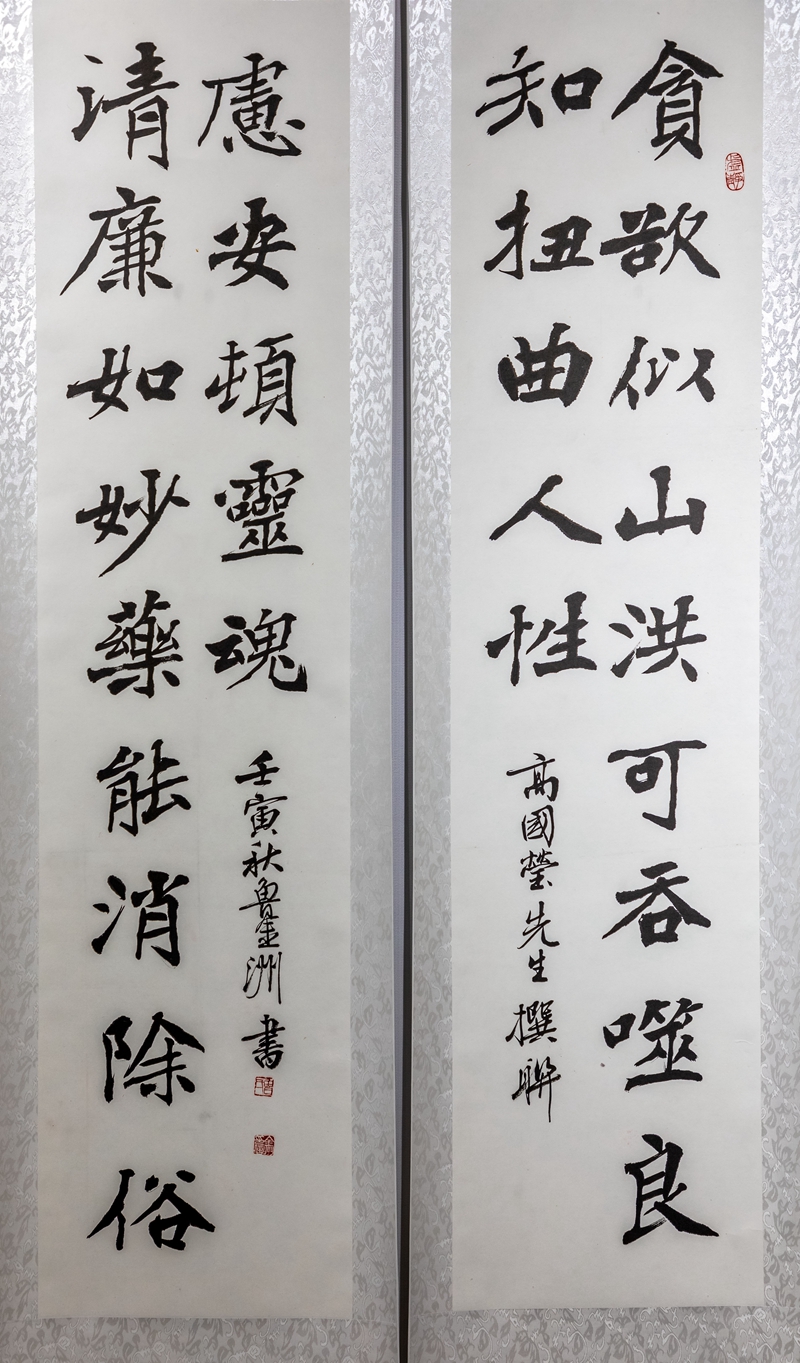 貪欲似山洪可吞噬良
知扭曲人性
高國瑩先生撰聯
清廉如妙藥能消除俗
慮安頓靈魂
壬寅秋魯金洲書